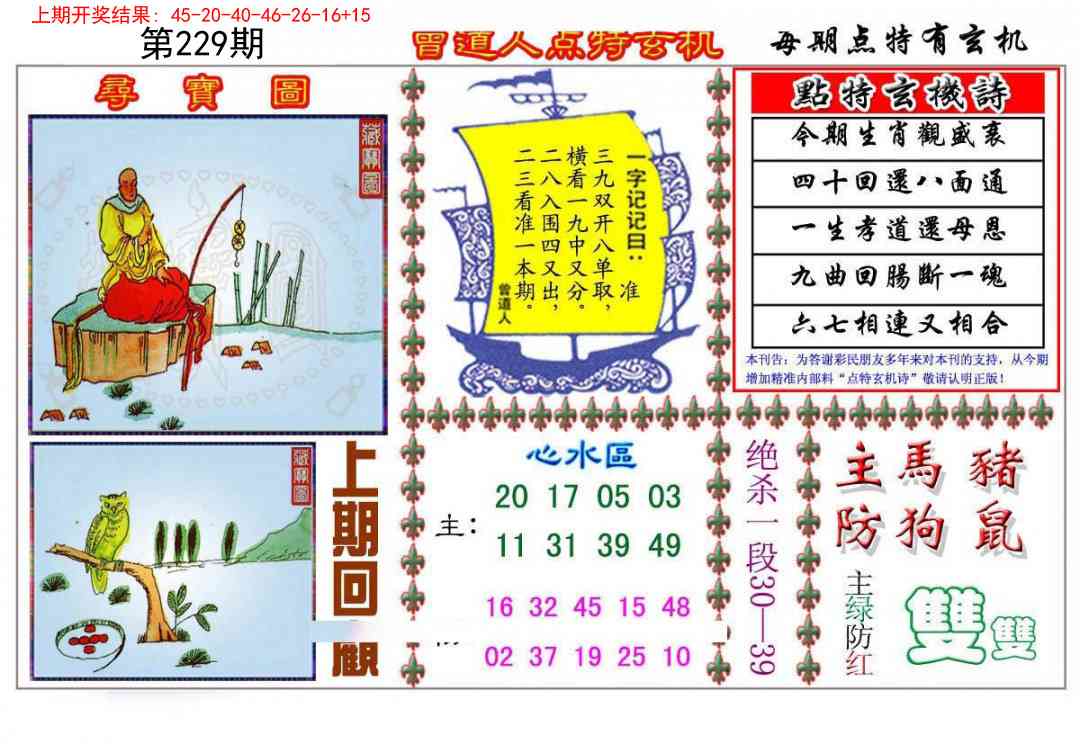 上期开奖结果：45-20-40-46-26-16+15
第229期
曾道人点特玄机
每期点特有玄机
尋寶圖
藏寶圖
一字记记曰：准
三九双开八单取，
横看一九中又分。
二八入围四又出，
二三看准一本期。
曾道人
點特玄機詩
今期生肖觀盛衰
四十回還八面通
一生孝道還母恩
九曲回腸斷一魂
六七相連又相合
本刊告：为答谢彩民朋友多年来对本刊的支持，从今期
增加精准内部料“点特玄机诗”敬请认明正版！
藏寶圖
上期回觀
心水區
主：
20 17 05 03
11 31 39 49
16 32 45 15 48
02 37 19 25 10
绝杀一段30—39
主馬豬
防狗鼠
主绿防红
雙雙